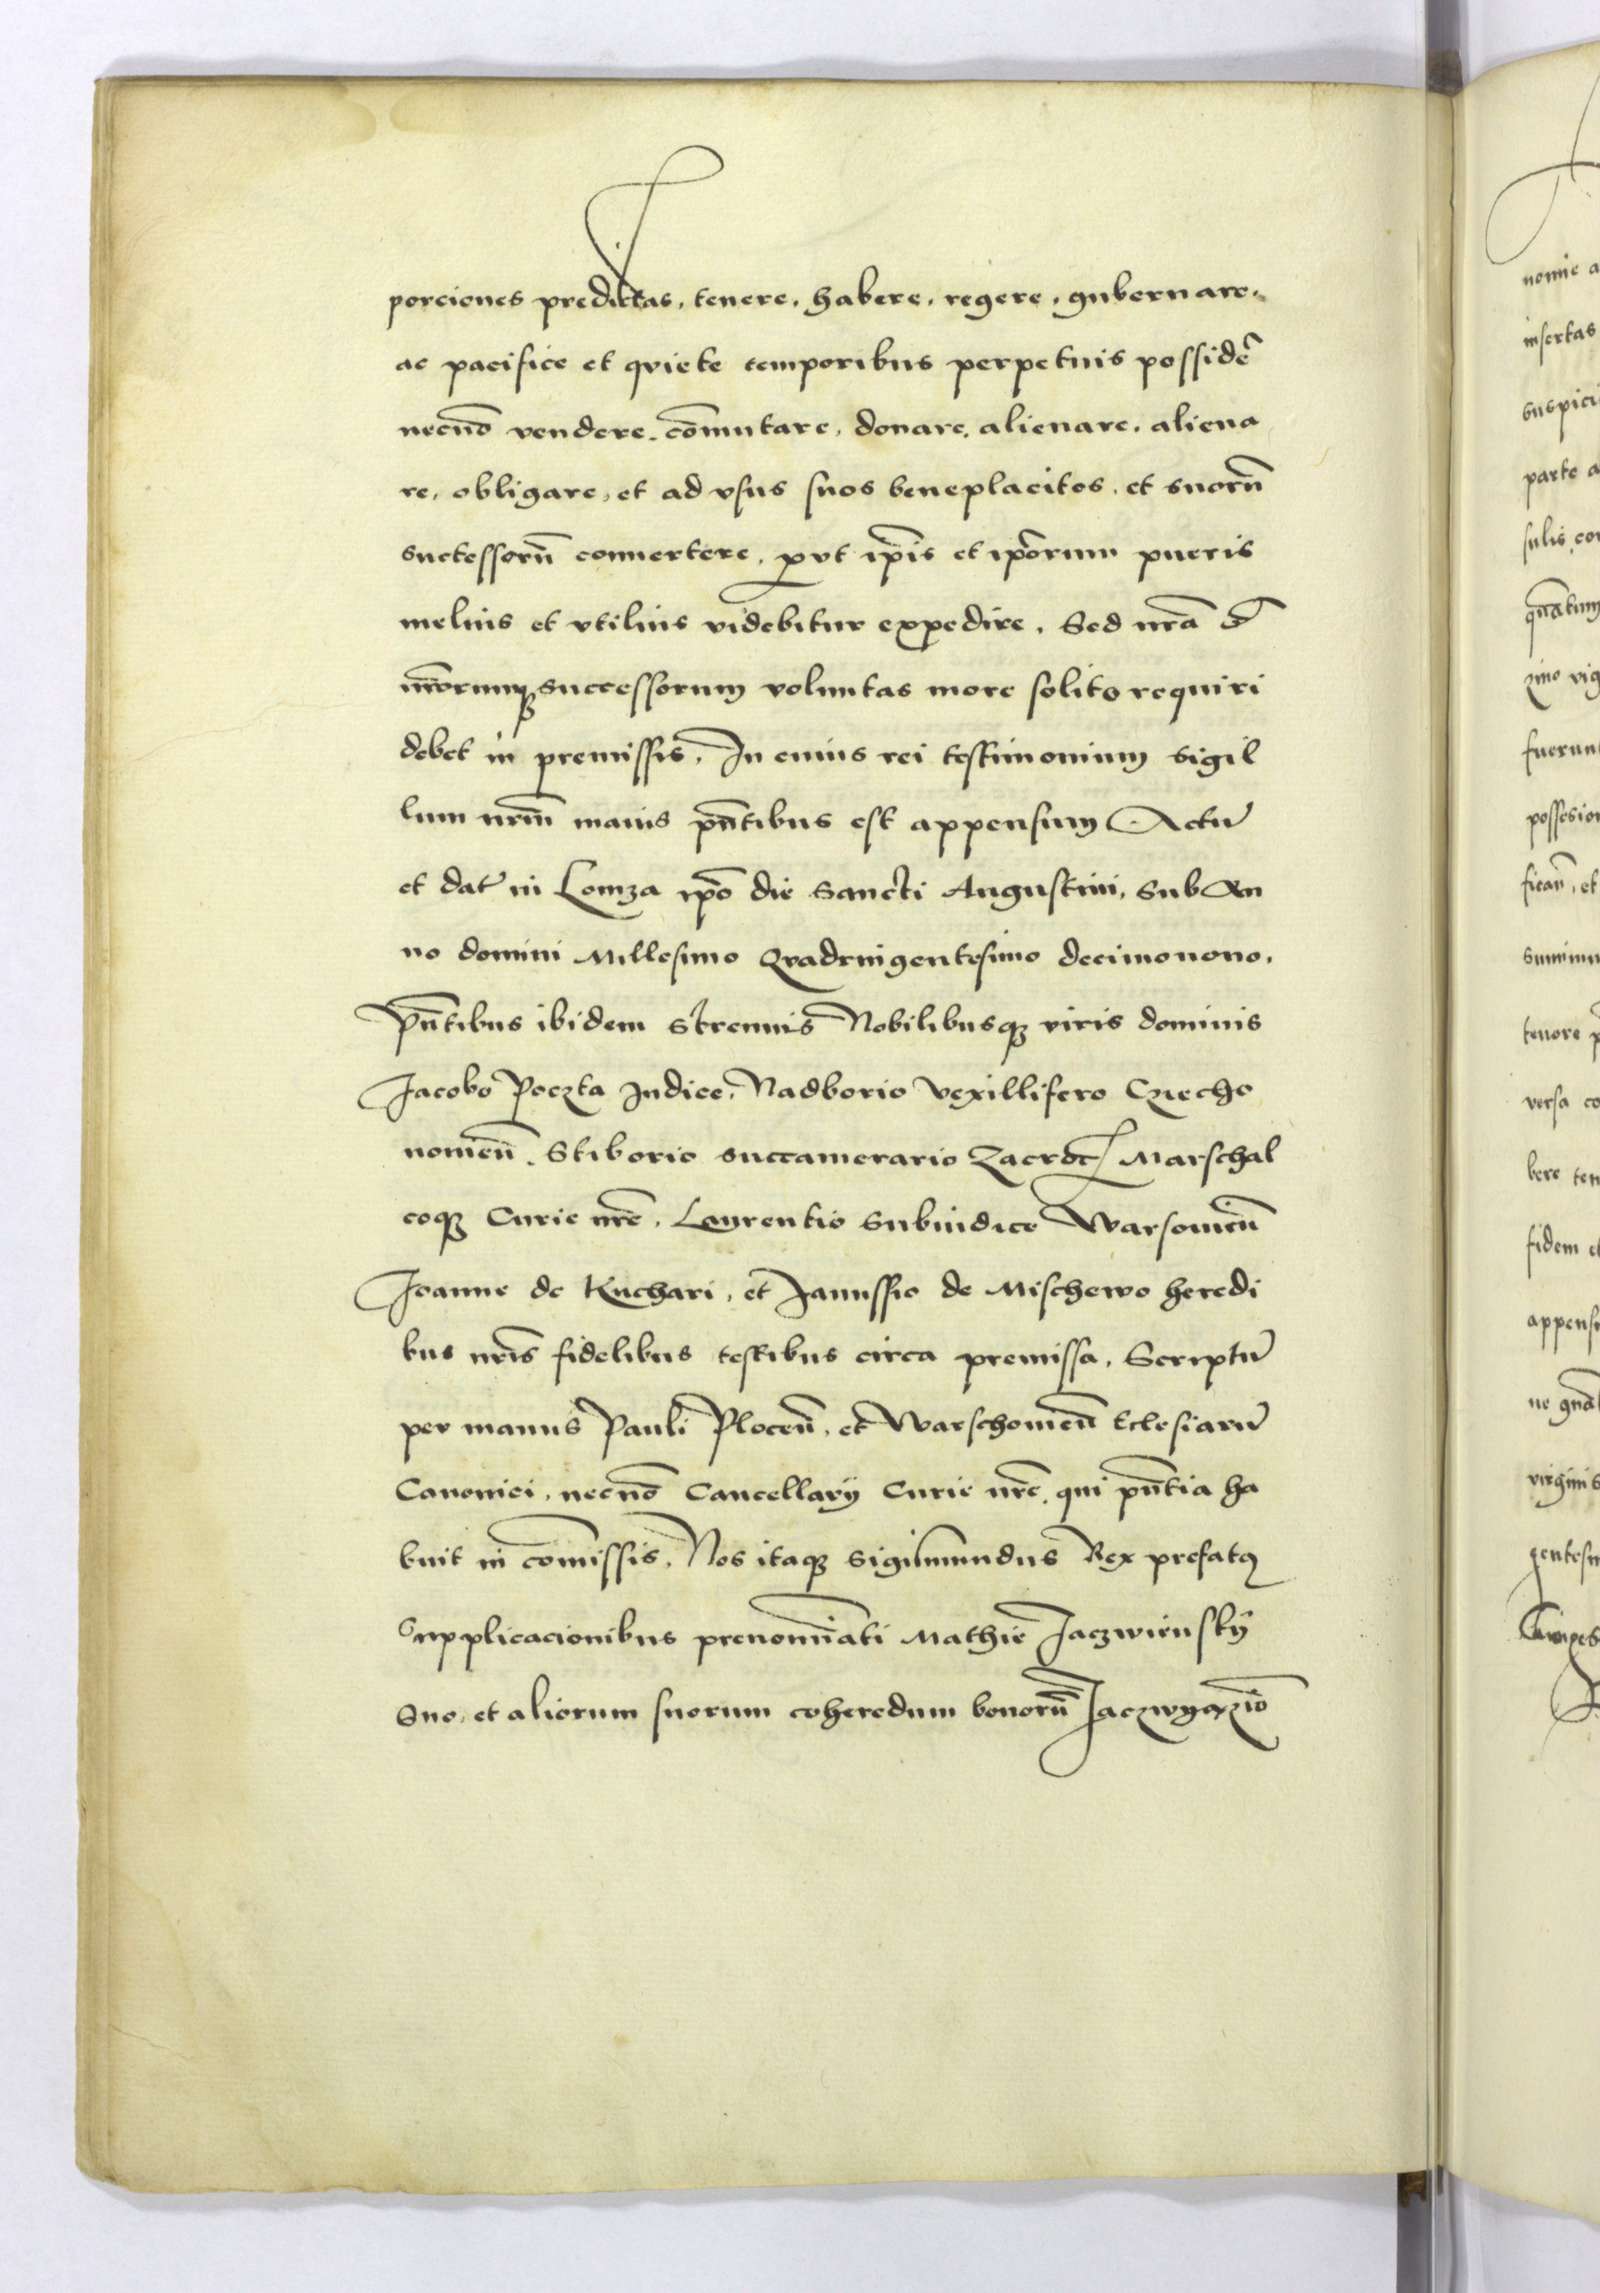 porciones predictas, tenere, habere, regere, gubernare,
ac pacifice et qviete temporibus perpetuis possidē
necnō vendere, cōmutare, donare, alienare, aliena
re, obligare, et ad vsus suos beneplacitos, et suorū
successorū conuertere, ꝓut ip̄is et ip̄orum pueris
melius et vtilius videbitur expedire. Sed nr̄a
nr̄orumqꝫ successorum voluntas more solito requiri
debet in premissis. In cuius rei testimonium sigil
lum nr̄m maius pn̄tibus est appensum Actū
et dat in Lomza ip̄o die Sancti Augustini, Sub An
no domini Millesimo Qvadringentesimo decimonono,
Pn̄tibus ibidem Strenuis Nobilibusqꝫ viris dominis
Jacobo Poczta Judice, Nadborio Vexillifero Cziecho
nouien̄, Stiborio succamerario Zacrocz Marschal
coqꝫ Curie nr̄e, Laurentio Subiudice Warsouien̄
Joanne de Kuchari, et Janussio de Mischewo heredi
bus nr̄is fidelibus testibus circa premissa, Scriptū
per manus Pauli Plocen̄, et Warschouien̄ Eclesiarū
Canonici, necnō Cancellarij Curie nr̄e, qui pn̄tia ha
buit in comissis, Nos itaqꝫ Sigismundus Rex prefatꝰ
Supplicacionibus prenoīnati Mathie Jaczwiensky
Suo, et aliorum suorum coheredum bonorū

nomie a
insertas
suspici
parte a
sulis, con
quātum
zimo vig
fuerunt
possesion
fican̄, et
summu
tenore p
versa co
bere ten
fidem et
appens
virginis
gentesi